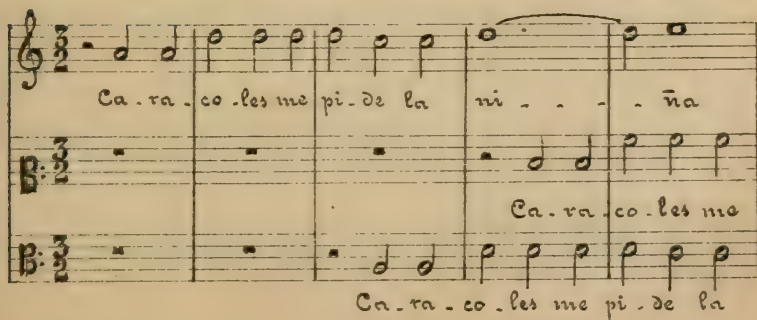 Ca-ra-co-les me pi-de la ni - - - ña
Ca-ra-co-les me
Ca-ra-co-les me pi-de la